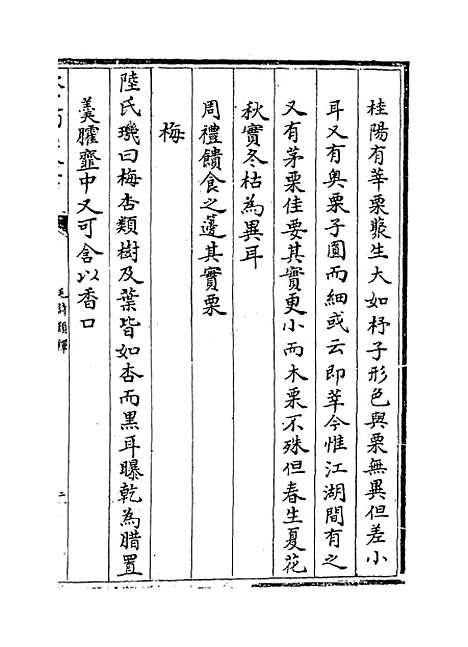 桂陽有莘栗藂生大如杼子形色與栗無異但差小
耳又有奥栗子圓而細或云即莘今惟江湖間有之
又有茅栗佳要其實更小而木栗不殊但春生夏花
秋實冬枯為異耳
周禮饋食之籩其實栗
梅
陸氏璣曰梅杏類樹及葉皆如杏而黒耳曝乾為腊置
羮臛虀中又可含以香口
毛詩類釋
二